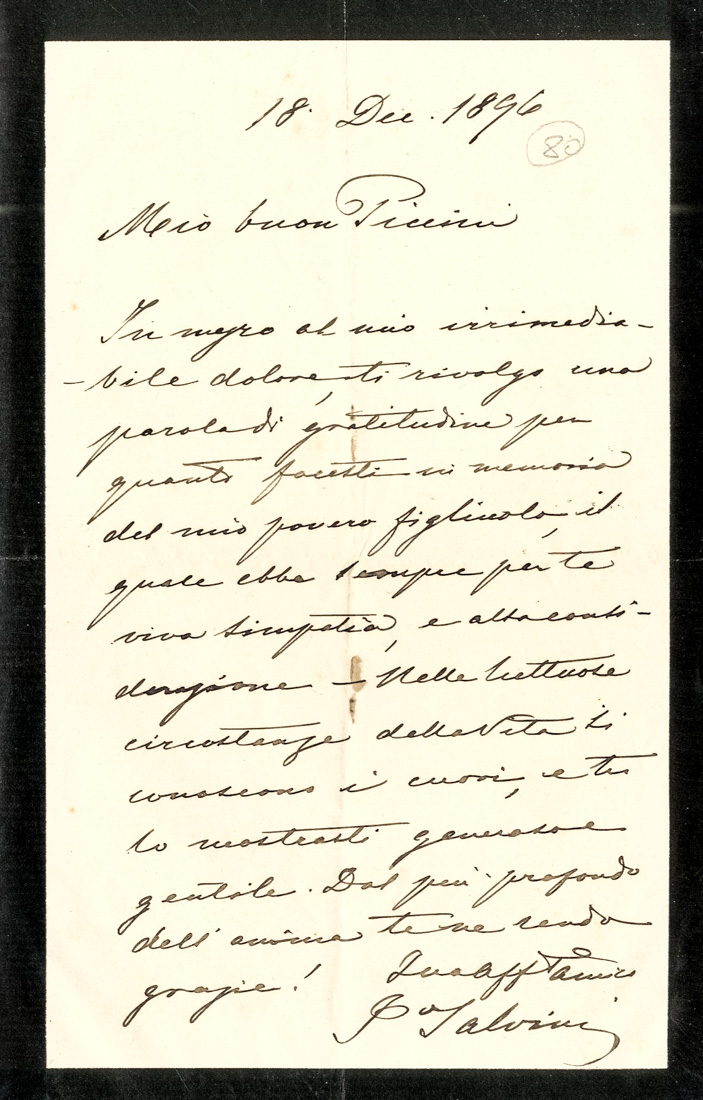 18. Dec. 1896
80
Mio buon Piccini
In mezzo al mio irrimedia-
-bile dolore, ti rivolgo una
parola di gratitudine per
quanto facesti in memoria
del mio povero figliuolo, il
quale ebbe sempre per te
viva simpatia, e alta consi-
derazione – Nelle luttuose
circostanze della Vita si
conoscono i cuori, e tu
lo mostrasti generoso e
gentile. Dal più profondo
dell'anima te ne rendo
grazie! Tuo Aff.mo Amico
T.o Salvini